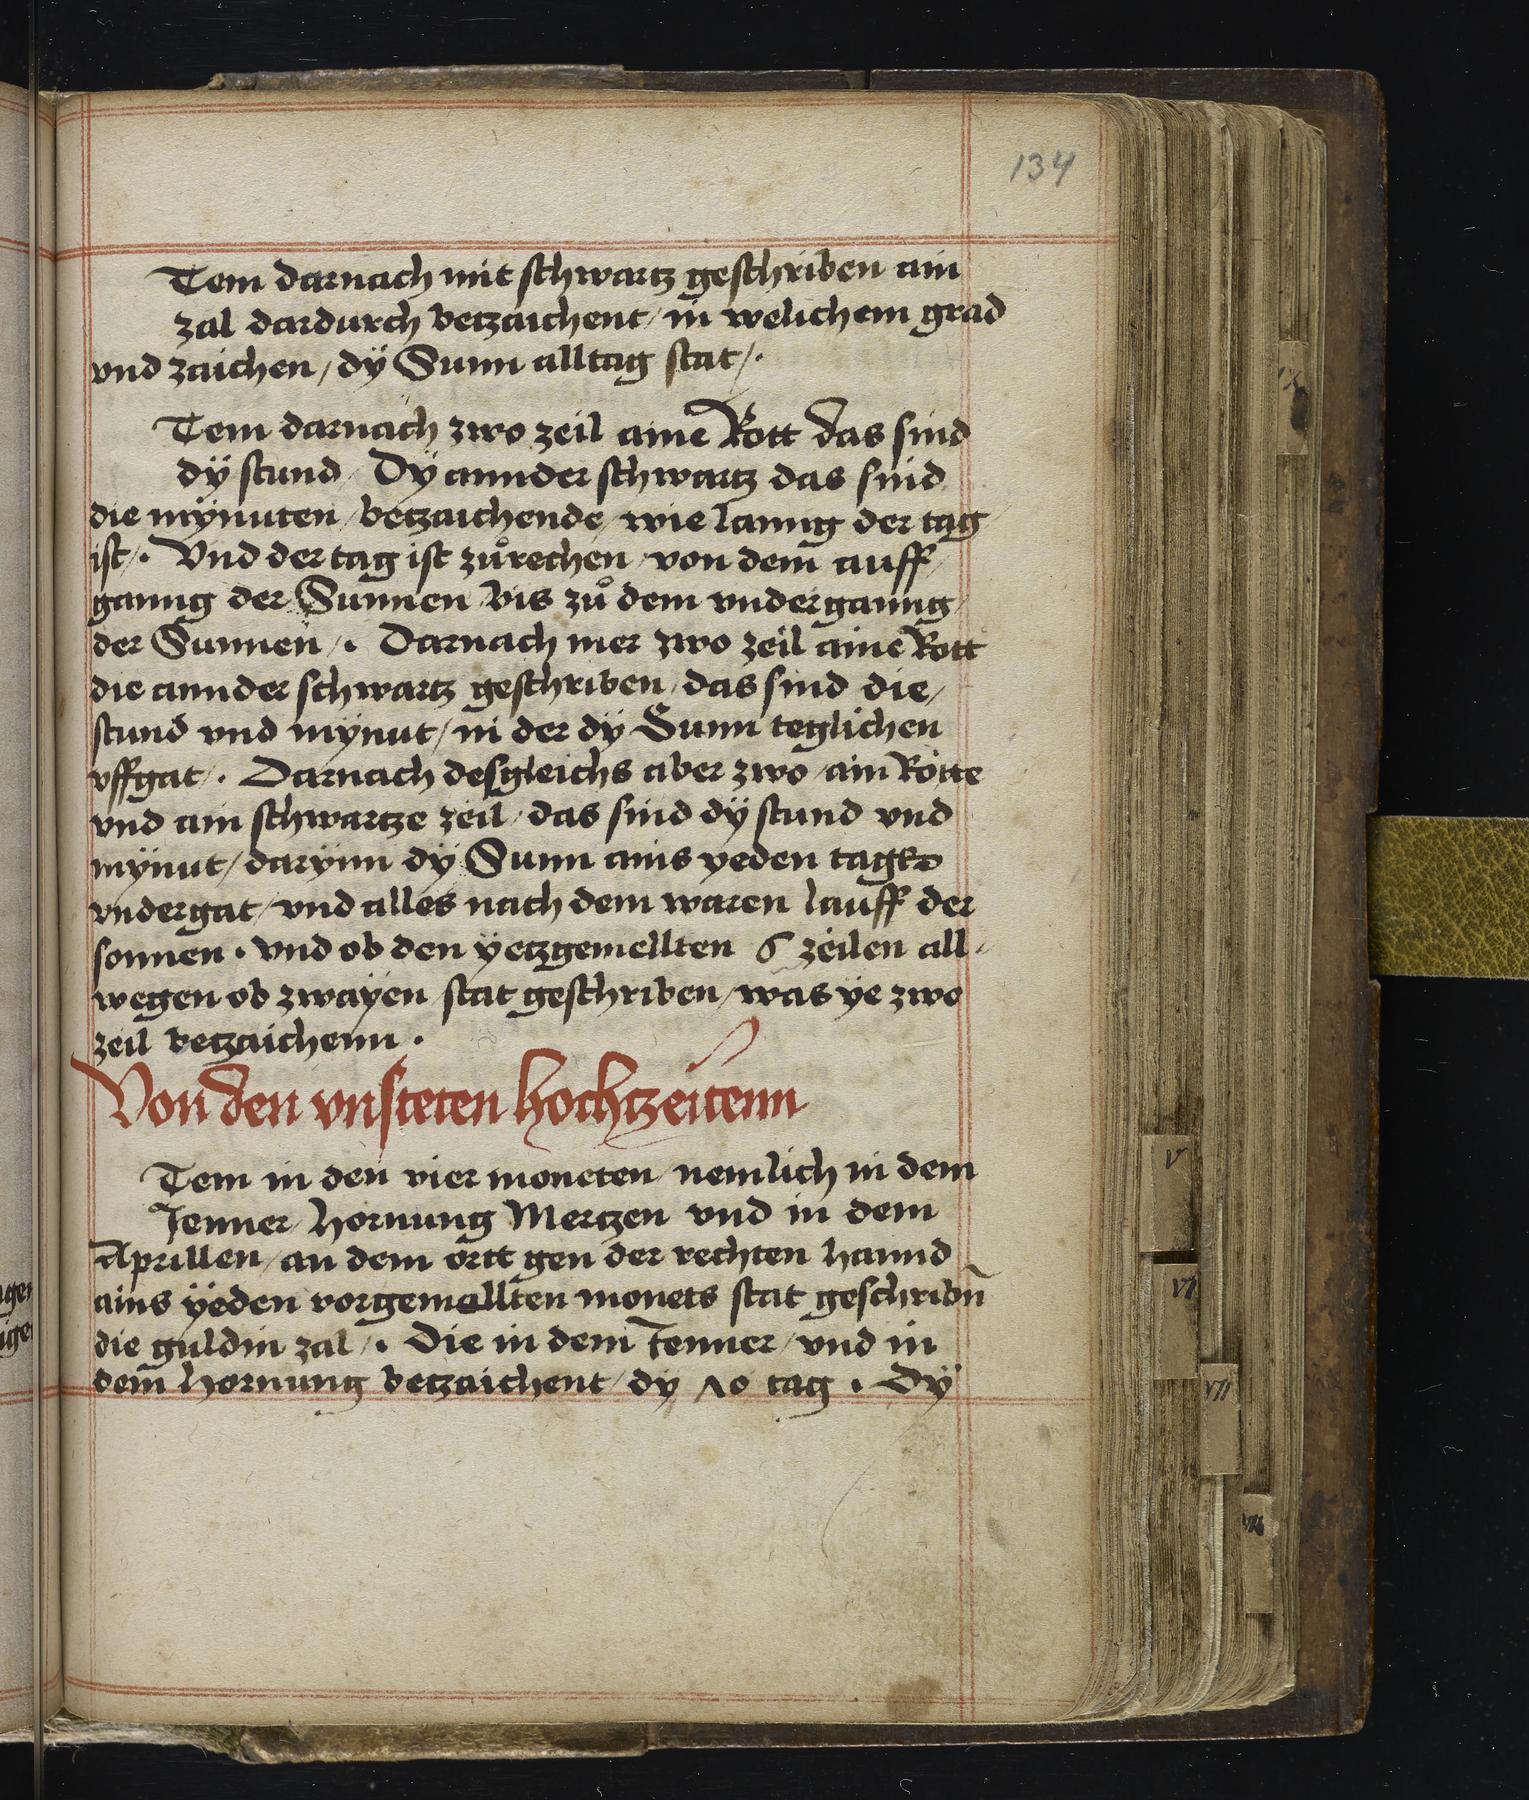 134
Tem darnach mit schwartz geschriben ain
zal dardurch betzaichent / in welichem grad
vnd zaichen / dÿ Sunn alltag stat / .
Tem darnach zwo zeil aine Rott das sind
dÿ stund / Dÿ annder schwartz das sind
die mÿnuten / betzaichende / wie lanng der tag
ist / . Vnd der tag ist zů rechen / von dem auff /
ganng der Sunnen / bis zů dem vnderganng /
der Sunnen / . Darnach mer zwo zeil aine Rott
die annder schwartz geschriben / das sind die /
stund vnd mÿnut / in der dÿ Sunn teglichen
vffgat / . Darnach desgleichs aber zwo / ain Rotte
vnd ain schwartze zeil / das sind dÿ stund vnd
mÿnut / darÿnn dÿ Sunn ains yeden tags
vndergat / vnd alles nach dem waren lauff der
sonnen . vnd ob den ÿetzgemellten 6 zeilen all-
wegen ob zwaÿen / stat geschriben / was ye zwo
zeil betzaichenn .
Von den vnsteten hochtzeitenn
Tem in den vier moneten / nemlich in dem
Jenner / Hornung Mertzen vnd in dem
Aprillen / an dem ortt gen der rechten hannd
ains ÿeden vorgemellten monets stat geschribn̄
die guldin zal / . Die in dem Jenner / vnd in
dem Hornung betzaichent / dy 10 tag . Dÿ
V
VI
VII
VIII
IX